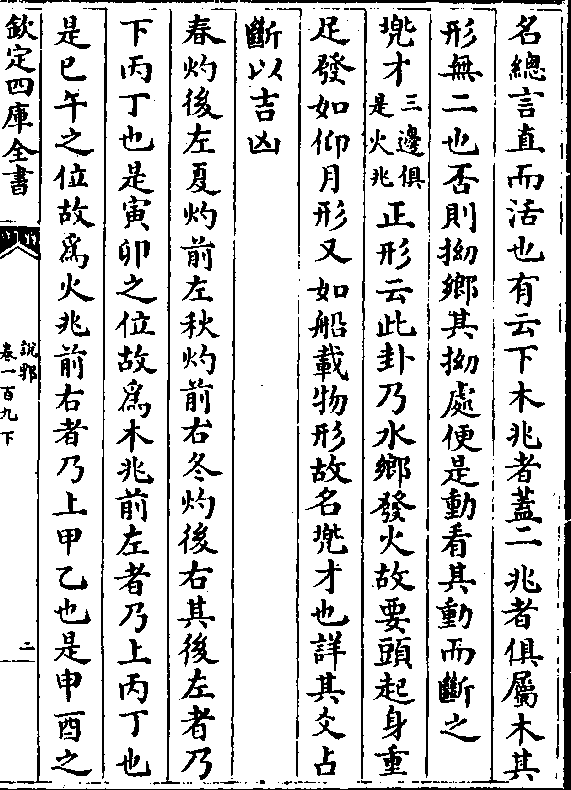 名總言直而活也有云下木兆者蓋二兆者俱屬木其
形無二也否則拗鄉其拗處便是動看其動而斷之
兠才三邊俱是火兆正形云此卦乃水鄉發火故要頭起身重
足發如仰月形又如船載物形故名兠才也詳其爻占
斷以吉凶
春灼後左夏灼前左秋灼前右冬灼後右其後左者乃
下丙丁也是寅卯之位故爲木兆前左者乃上丙丁也
是巳午之位故爲火兆前右者乃上甲乙也是申酉之
欽定四庫全書
說郛
卷一百九下
二